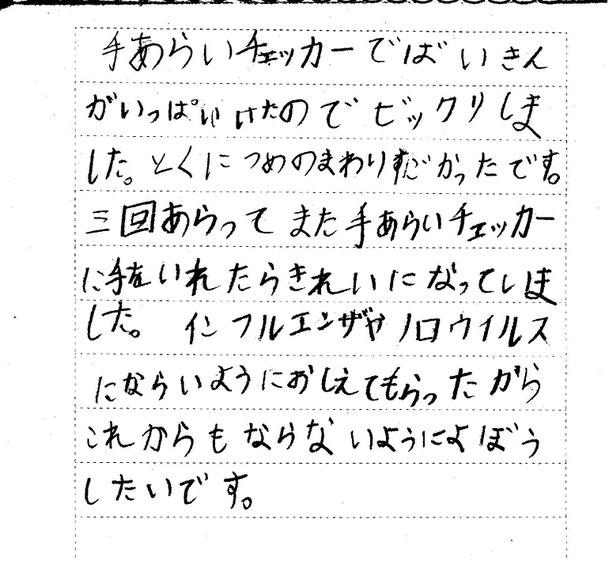 手あらいチェッカーでばいきん
がいっぱいいけたのでビックリしま
した。とくにつめのまわりすごかったです。
三回あらってまた手あらいチェッカー
に手をいれたらきれいになっていま
した。インフルエンザやノロウイルス
にならいようにおしえてもらったから
これからもならないようによぼう
したいです。